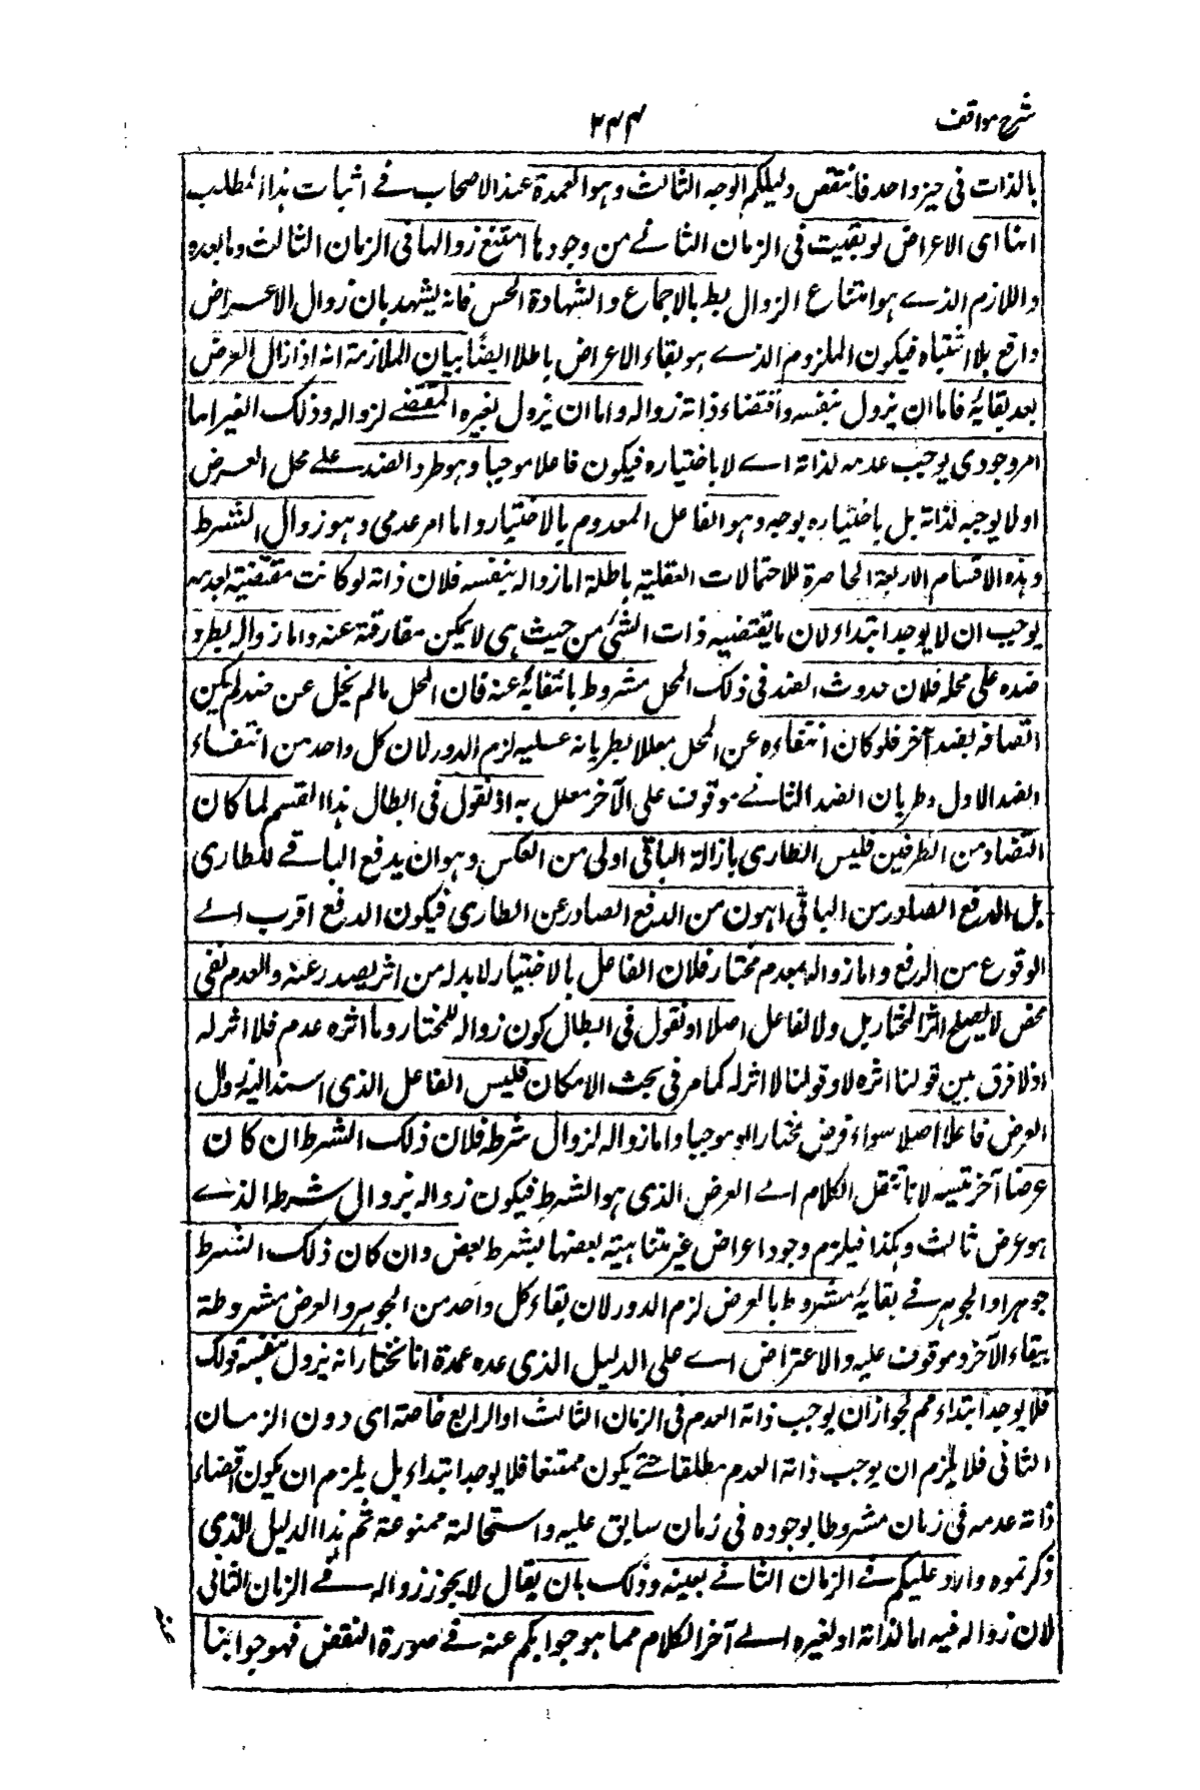 شرح مواقف
۲۴۴
بالذات فى حيز واحد فانتقض دليلكم الوجه الثالث وهو العمدة عند الاصحاب فى اثبات هذا المطلب
انها اى الاعراض لو بقيت فى الزمان الثانى من وجودها امتنع زوالها فى الزمان الثالث وما بعده
واللازم الذى هو امتناع الزوال بط بالاجماع والشهادة الحس فانه يشهد بان زوال الاعراض
واقع بلا اشتباه فيكون الملزوم الذى هو بقاء الاعراض باطلا ايضًا بيان الملازمة انه اذا زال العرض
بعد بقائه فاما ان يزول بنفسه واقتضاء ذاته زواله واما ان يزول بغيره المقتضى لزواله وذلك الغير اما
امر وجودى يوجب عدمه لذاته اى لا باختياره فيكون فاعلا موجبا وهو طرو الضد على محل العرض
اولا يوجبه لذاته بل باختياره يوجبه وهو الفاعل المعدوم بالاختيار واما امر عدمى وهو زوال الشرط
وهذه الاقسام الاربعة الحاصرة للاحتمالات العقلية باطلة اما زواله بنفسه فلان ذاته لو كانت مقتضية لعدمه
يوجب ان لا يوجد ابتداء لان ما يقتضيه ذات الشئ من حيث هى لا يمكن مفارقته عنه واما زواله بطرو
ضده على محله فلان حدوث الضد فى ذلك المحل مشروط بانتفائه عنه فان المحل ما لم يخل عن ضد لم يكن
اتصافه بضد آخر فلو كان انتفاءه عن المحل معللا بطريانه عليه لزم الدور لان كل واحد من انتفاء
الضد الاول وطريان الضد الثانى موقوف على الآخر معلل به او نقول فى ابطال هذا القسم لما كان
التضاد من الطرفين فليس الطارى بازالة الباقى اولى من العكس وهو ان يدفع الباقى للطارى
بل الدفع الصادر من الباقى اهون من الدفع الصادر عن الطارى فيكون الدفع اقرب الى
الوقوع من الرفع واما زواله بمعدم مختار فلان الفاعل بالاختيار لا بد له من اثر يصدر عنه والعدم نفى
محض لا يصلح اثرا لمختار بل ولا لفاعل اصلا او نقول فى ابطال كون زواله للمختار وما اثره عدم فلا اثر له
اذ لا فرق بين قولنا اثره لا وقولنا لا اثر له كما مر فى بحث الامكان فليس الفاعل الذى اسند اليه زوال
العرض فاعلا اصلا سواء فرض مختارا او موجبا واما زواله لزوال شرطه فلان ذلك الشرط ان كان
عرضا آخر تسلسل لانا ننقل الكلام الى العرض الذى هو الشرط فيكون زواله بزوال شرطه الذى
هو عرض ثالث وهكذا فيلزم وجود اعراض غير متناهية بعضها بشرط بعض وان كان ذلك الشرط
جوهرا والجوهر فى بقائه مشروط بالعرض لزم الدور لان بقاء كل واحد من الجوهر والعرض مشروطة
ببقاء الآخر وموقوف عليه والاعتراض اى على الدليل الذى عده عمدة انا نختار انه يزول بنفسه قولك
فلا يوجد ابتداء مم لجواز ان يوجب ذاته العدم فى الزمان الثالث او الرابع خاصة اى دون الزمان
الثانى فلا يلزم ان يوجب ذاته العدم مطلقا حتى يكون ممتنعا فلا يوجد ابتداء بل يلزم ان يكون اقتضاء
ذاته عدمه فى زمان مشروطا بوجوده فى زمان سابق عليه واستحالته ممنوعة ثم هذا الدليل الذى
ذكرتموه وارد عليكم فى الزمان الثانى بعينه وذلك بان يقال لا يجوز زواله فى الزمان الثانى
لان زواله فيه اما لذاته او لغيره الى آخر الكلام مما هو جوابكم عنه فى صورة النقض فهو جوابنا
عنه